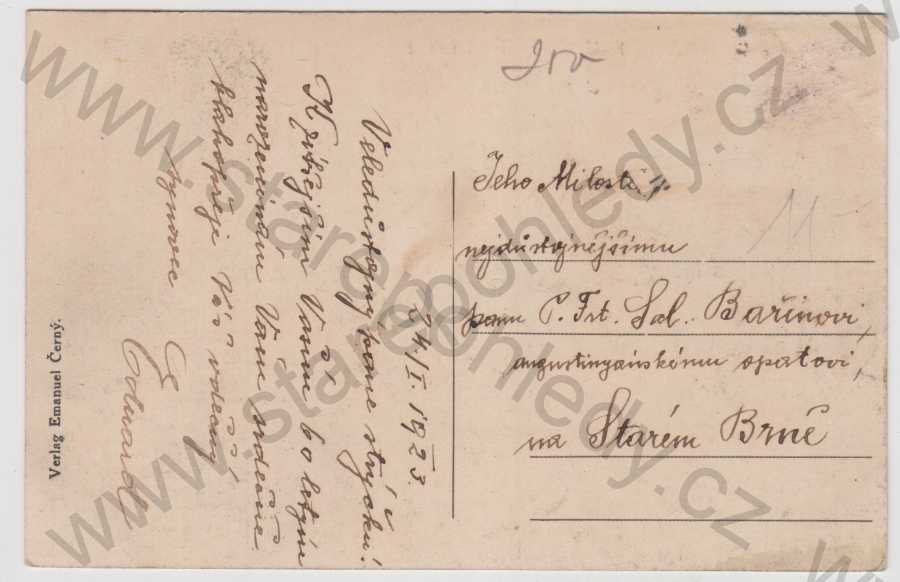 24/I. 1923.
Veledůstojný pane strýčku!
K zítřejším Vašim 60 letým
narozeninám Vám srdečně
blahopřeje Váš vděčný
synovec
Eduard
Verlag Emanuel Černý.
Jeho Milosti
nejdůstojnějšímu
panu P. Frt. Sal. Bařinovi,
augustinyánskému opatovi,
na Starém Brně
11
www.starepohledy.cz